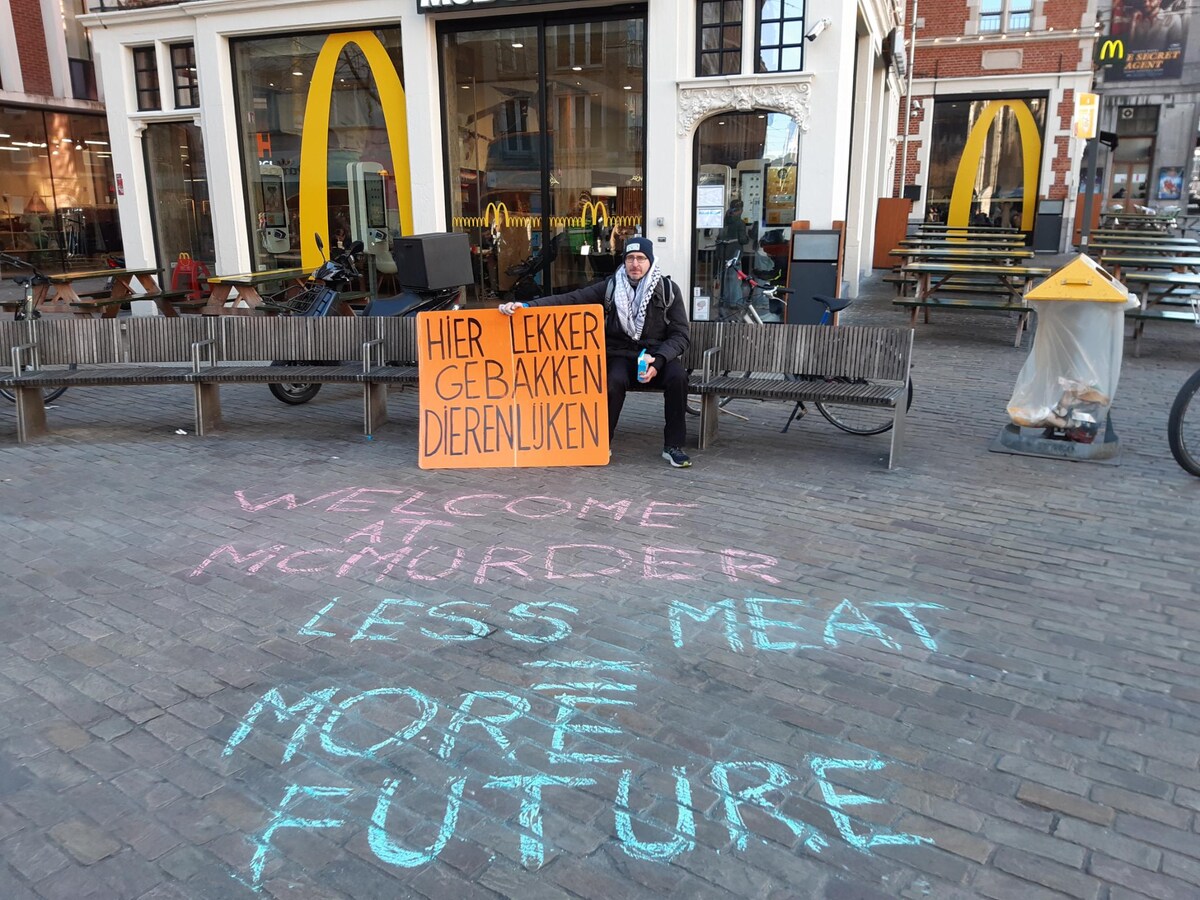 E SECRET
AGENT
HIER LEKKER
GEBAKKEN
DIERENLIJKEN
WELCOME
AT
MCMURDER
LESS MEAT
=
MORE
FUTURE